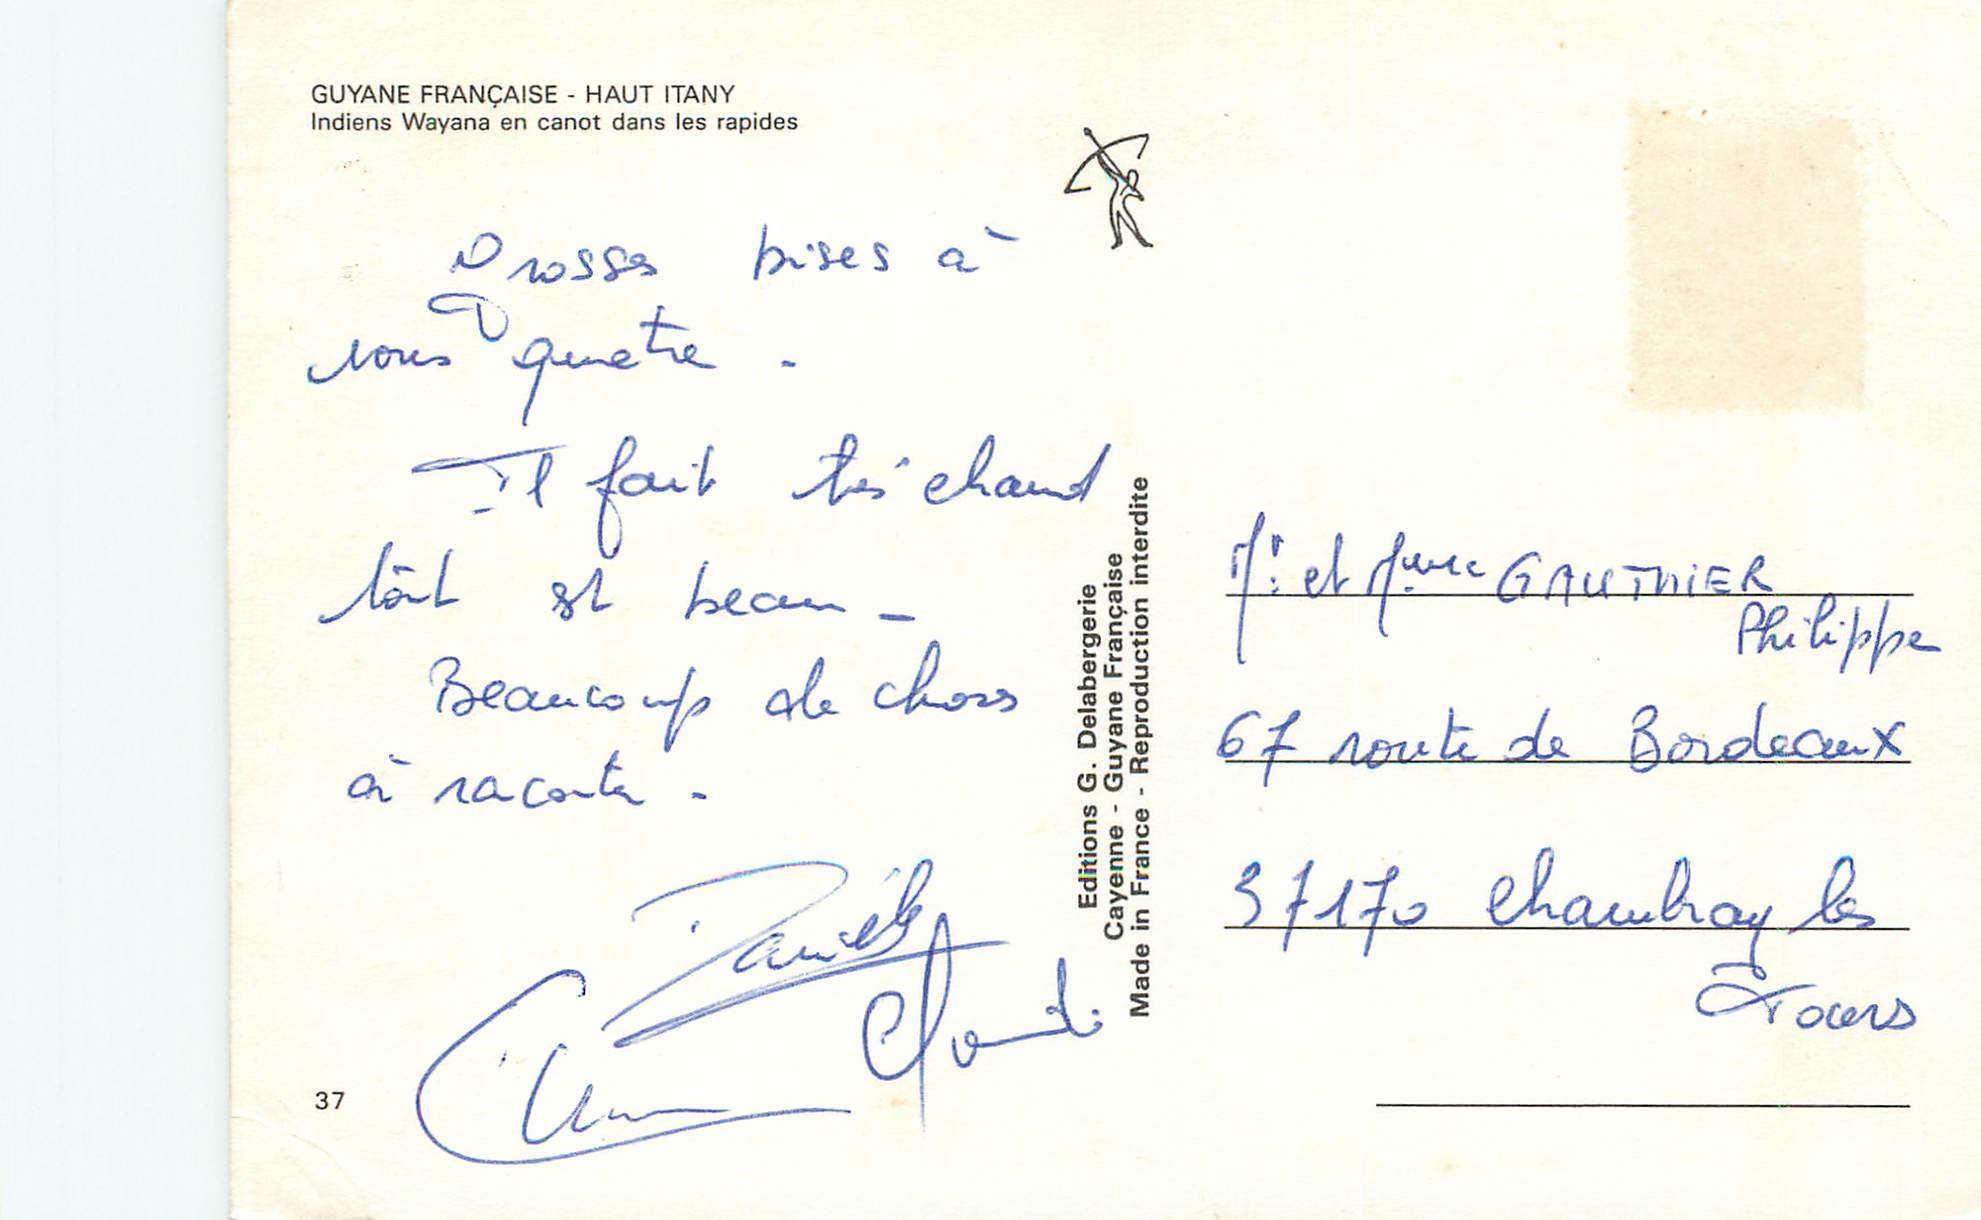 GUYANE FRANÇAISE - HAUT ITANY
Indiens Wayana en canot dans les rapides
Grosses bises à
vous quatre.
Il fait très chaud
tout est beau -
Beaucoup de choses
à raconter.
Danièle
Claude
37
Editions G. Delabergerie
Cayenne - Guyane Française
Made in France - Reproduction interdite
Mr. et Mme GAUTHIER
Philippe
67 route de Bordeaux
37170 Chambray les
Tours